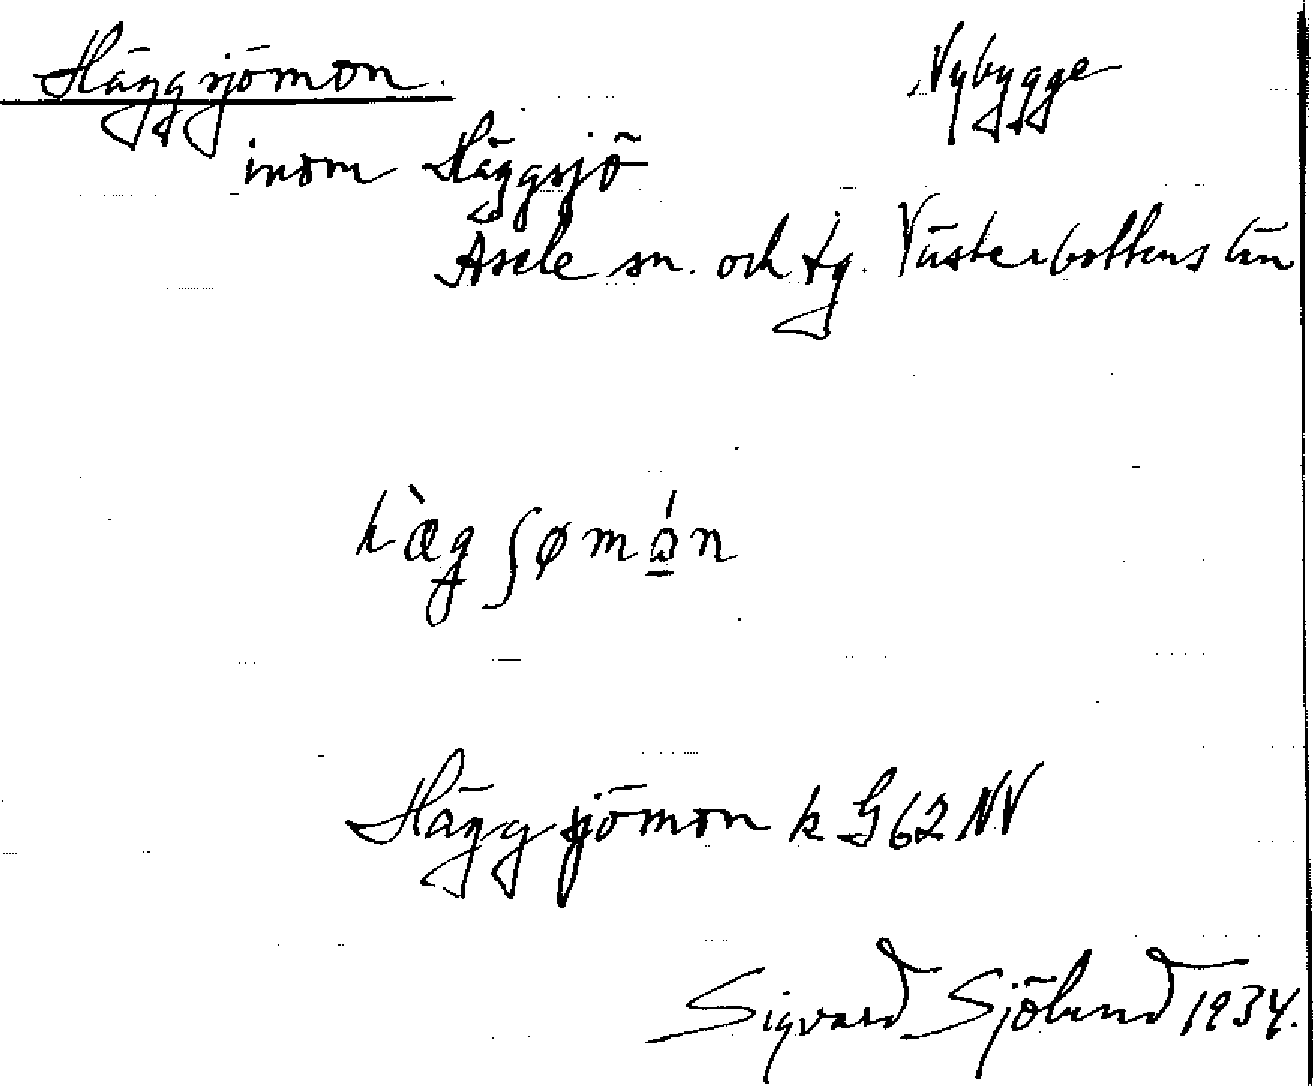 Häggsjömon. Nybygge
inom Häggsjö
Åsele sn. och tg. Västerbottens län
hàgʃømǻn
Häggsjömon k G62 NV
Sigvard Sjölund 1934.